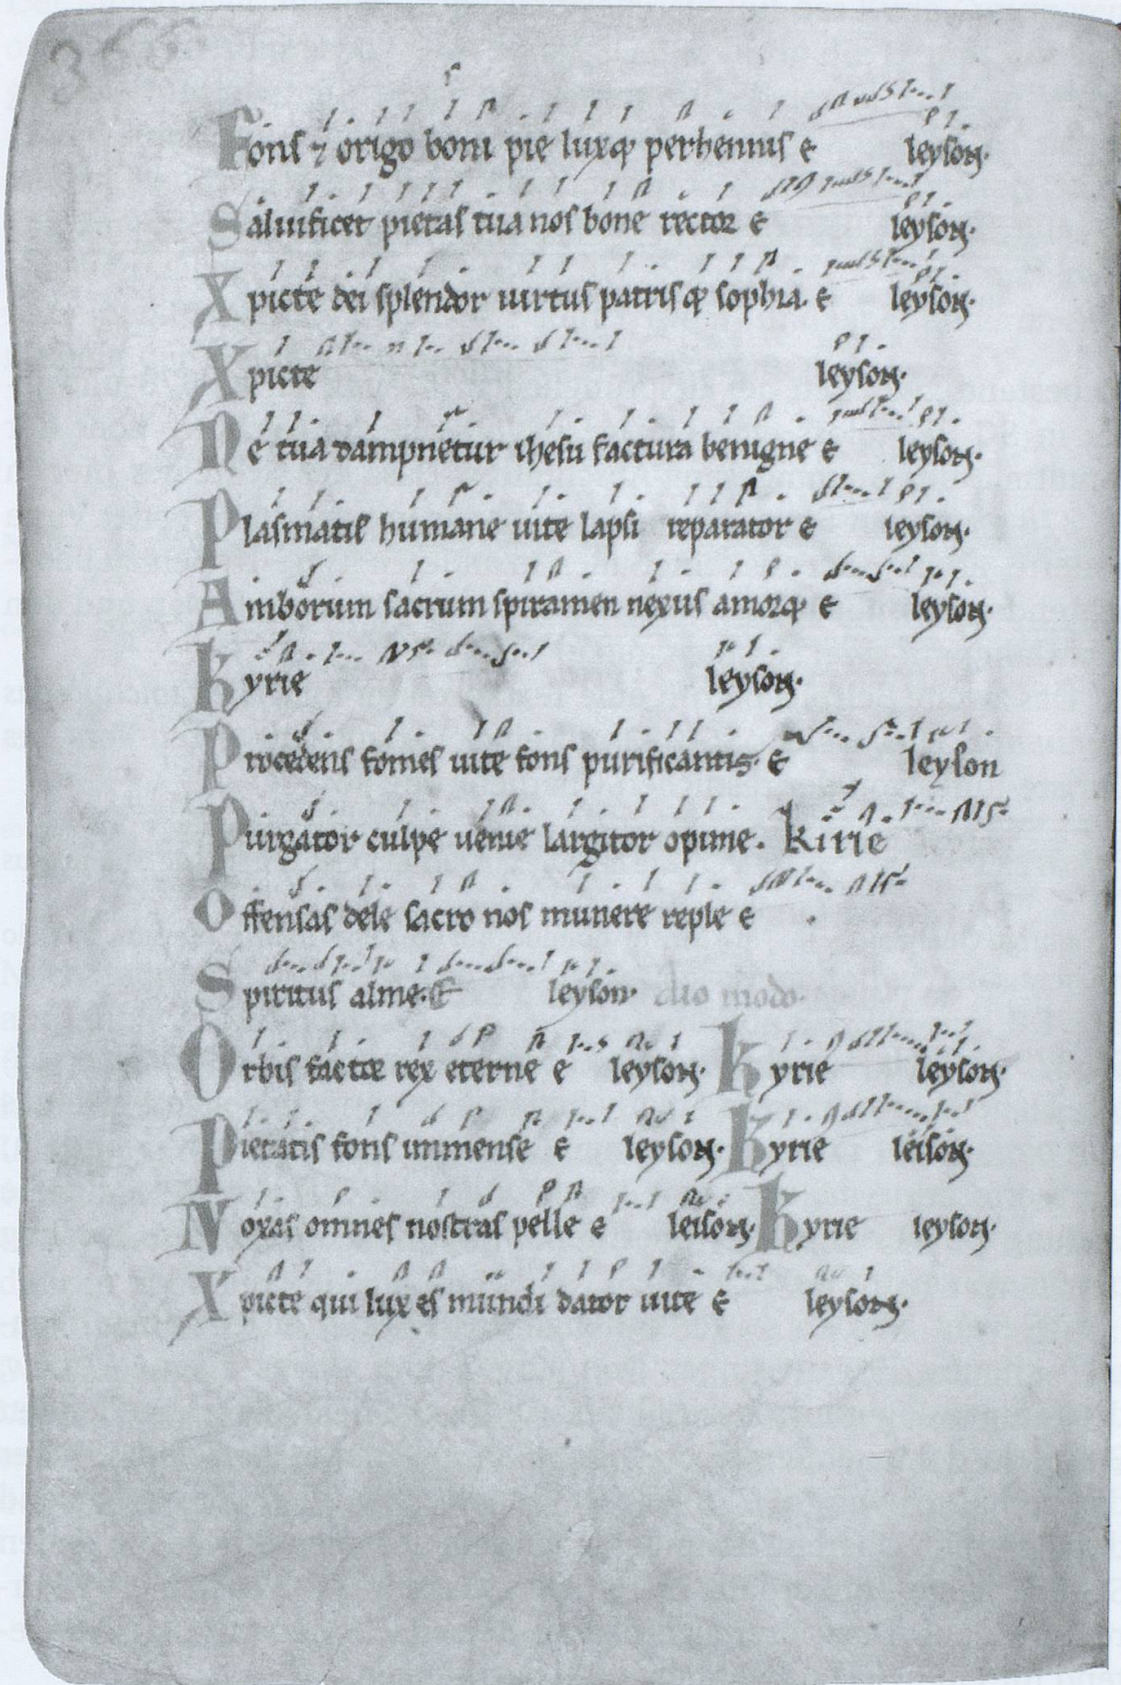 366
Fons ⁊ origo boni pie luxq; perhennis e leyson.
Saluificet pietas tua nos bone rector e leyson.
Xpicte dei splendor uirtus patrisq; sophia. e leyson.
Xpicte leyson.
Ne tua dampnetur ihesu factura benigne e leyson.
Plasmatis humane uite lapsi reparator e leyson.
Amborum sacrum spiramen nexus amorq; e leyson.
Kyrie leyson.
Procedens fomes uite fons purificantis. e leyson
Purgator culpe uenie largitor opime. kirie
Offensas dele sacro nos munere reple e
Spiritus alme. E leyson. alio modo.
Orbis factor rex eterne e leyson. Kyrie leyson.
Pietatis fons immense e leyson. Kyrie leison.
Noxas omnes nostras pelle e leison. Kyrie leyson.
Xpicte qui lux es mundi dator uite e leyson.